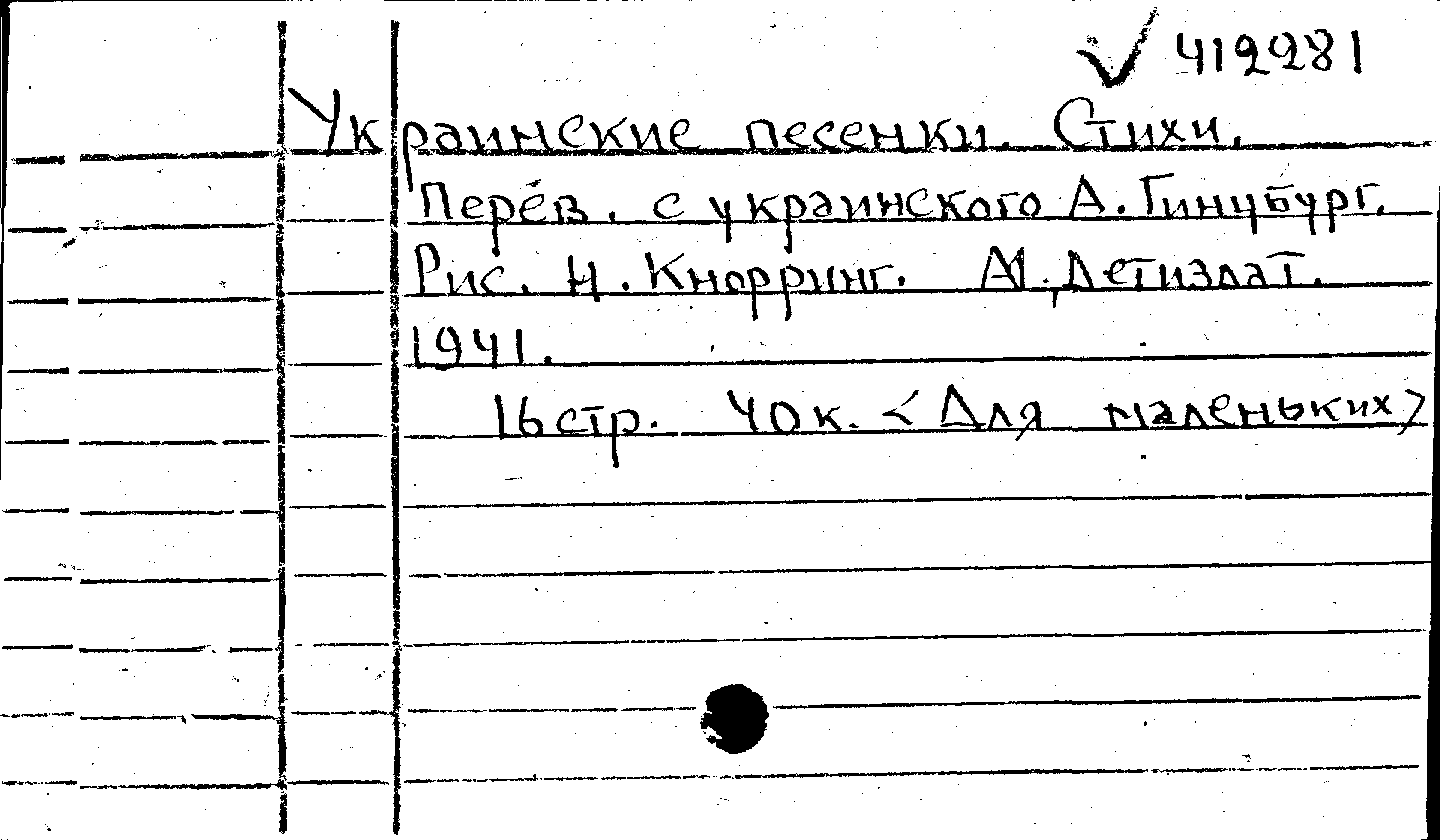 √ 419281
Украинские песенки. Стихи.
Перев. с украинского А. Гинцбург.
Рис. Н. Кнорринг. М., Детиздат.
1941.
16 стр. 40 к. <Для маленьких>